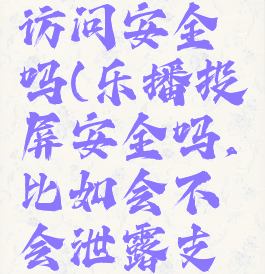 访问安全
吗(乐播投
屏安全吗,
比如会不
会泄露支